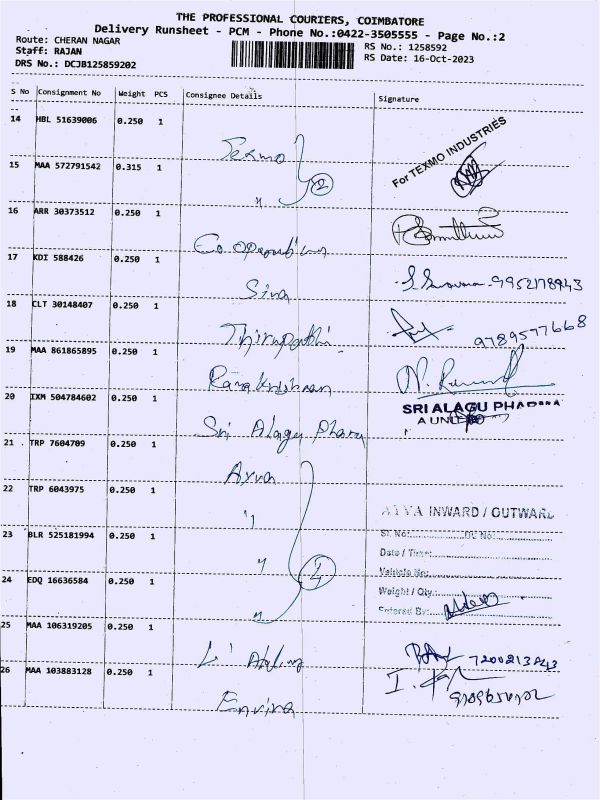 THE PROFESSIONAL COURIERS, COIMBATORE
Delivery Runsheet - PCM - Phone No.:0422-3505555 - Page No.:2
Route: CHERAN NAGAR
RS No.: 1258592
Staff: RAJAN
RS Date: 16-Oct-2023
DRS No.: DCJB125859202
S No Consignment No Weight PCS Consignee Details Signature
14 HBL 51639006 0.250 1
Texmo
For TEXMO INDUSTRIES
15 MAA 572791542 0.315 1
" 2
16 ARR 30373512 0.250 1
17 KDI 588426 0.250 1
Siva
9952178943
18 CLT 30148407 0.250 1
Thirupathi
9789577668
19 MAA 861865895 0.250 1
Ramakrishnan
20 IXM 504784602 0.250 1
Sri Alagu Pharm
SRI ALAGU PHARMA
21 TRP 7604709 0.250 1
Ayva
22 TRP 6043975 0.250 1
"
AYVA INWARD / OUTWARD
23 BLR 525181994 0.250 1
"
Sl. No: DC No:
Date / Time:
Vehicle No:
24 EDQ 16636584 0.250 1
" 4
Weight / Qty.:
Entered By:
25 MAA 106319205 0.250 1
26 MAA 103883128 0.250 1
Envira